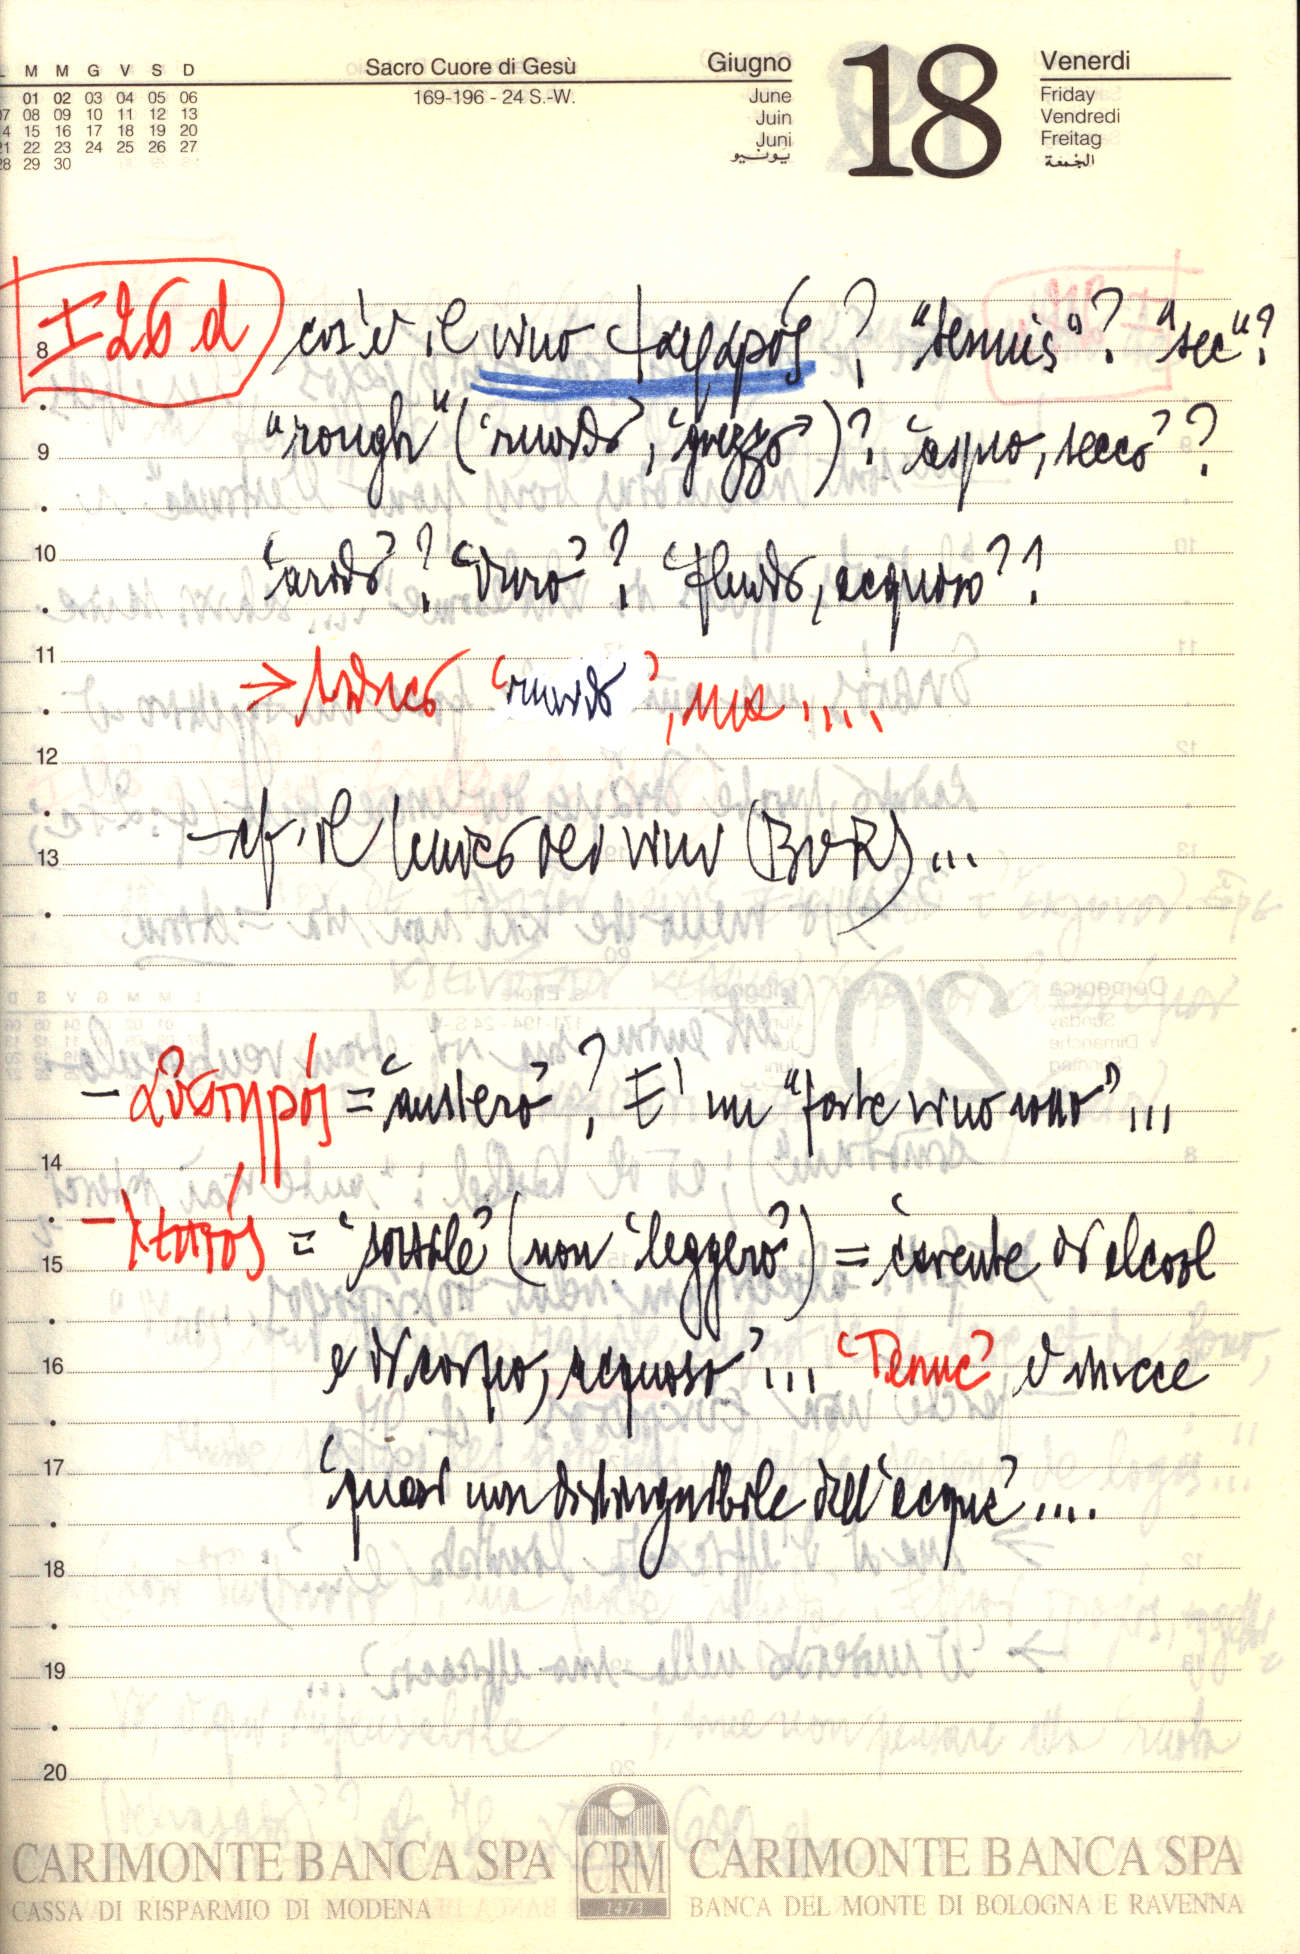 L M M G V S D
01 02 03 04 05 06
07 08 09 10 11 12 13
14 15 16 17 18 19 20
21 22 23 24 25 26 27
28 29 30
Sacro Cuore di Gesù
169-196 - 24 S.-W.
Giugno
June
Juin
Juni
يونيو
18
Venerdi
Friday
Vendredi
Freitag
الجمعة
I 26 d cos'è il vino ? "tenuis"? "sec"?
8
"rough" ('ruvido', 'grezzo')? 'aspro, secco'?
9
'arido'? 'Duro'? 'fluido, acquoso'?!
10
→ 'ruvido', ma ....
11
12
- cf. il lessico dei vini (BVR) ...
13
- αὐστηρός = 'austero'? E' un "forte vino rosso" ...
14
- λεπτός = 'sottile' (non 'leggero') = 'carente di alcool
15
e di corpo, acquoso' ... 'Tenue' è invece
16
'quasi non distinguibile dall'acqua' ....
17
18
19
20
CARIMONTE BANCA SPA
CASSA DI RISPARMIO DI MODENA
CRM
1473
CARIMONTE BANCA SPA
BANCA DEL MONTE DI BOLOGNA E RAVENNA